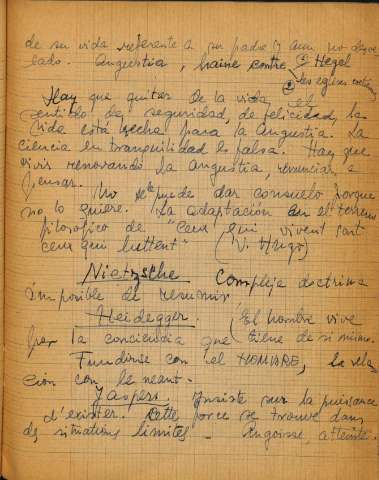 de su vida referente a su padre y aun no desve
lado. Angustia, haine contre ① Hegel
② les églises
Hay que quitar de la vida el
sentido de seguridad, de felicidad, la
vida está hecha para la angustia. La
ciencia en tranquilidad es falsa. Hay que
vivir renovando la angustia, renunciar a
pensar.
No se le puede dar consuelo porque
no lo quiere. La adaptación en el terreno
filosófico de "Ceux qui vivent sont
ceux qui luttent" (V. Hugo)
Nietzsche Compleja doctrina
imposible de resumir
Heidegger. (El hombre vive
por la conciencia que tiene de si mismo.
Fundirse con el HOMBRE, la rela
ción con le neant.
Jaspers. Insiste sur la puissance
d'exister. Cette force se trouve dans
des situations limites - Angoisse, attente.